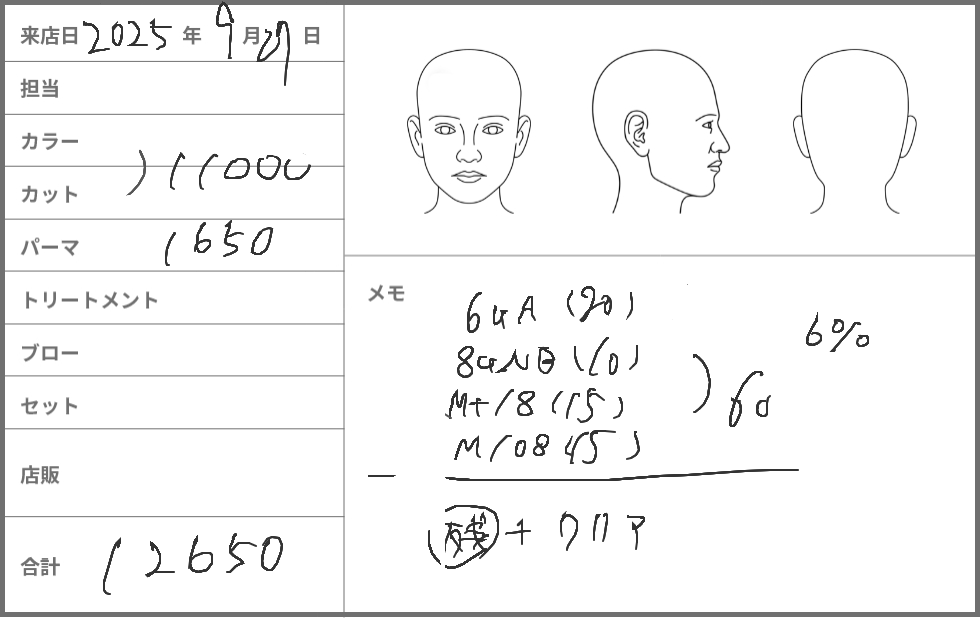 来店日 2025 年 9月29日
担当
カラー
カット ) 11000
パーマ 1650
トリートメント
ブロー
セット
店販
合計 12650
メモ
6GA (20)
8GNB (10)
M+/8 (15)
M/08 (15)
) 60
6%
+ クリア